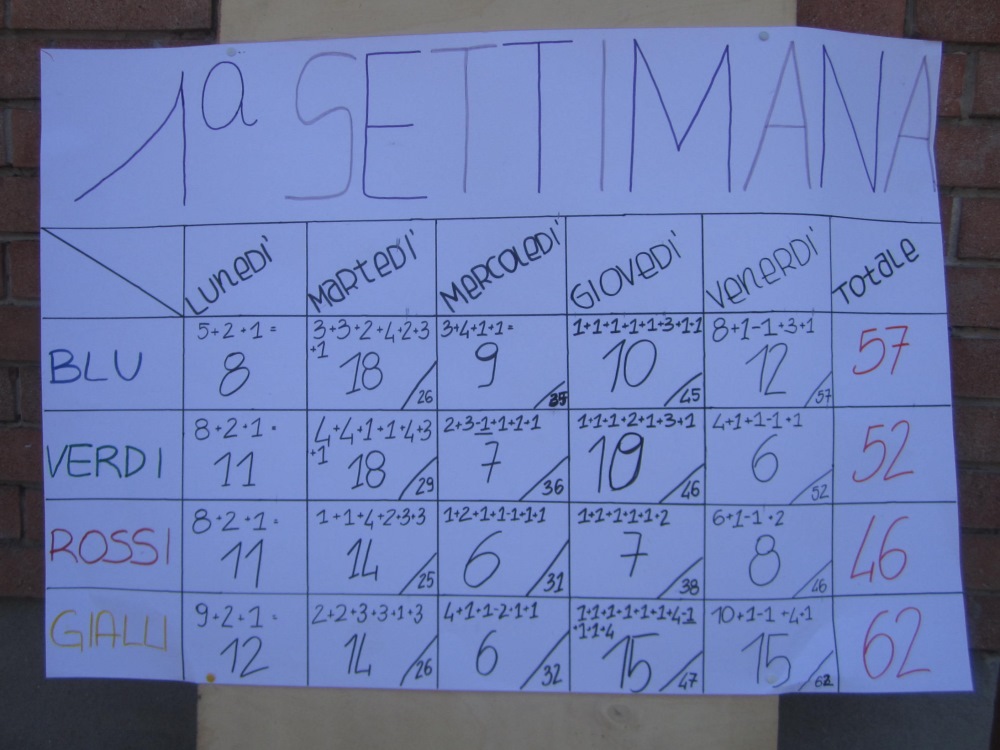 1ª SETTIMANA
LUNEDI' MARTEDI' MERCOLEDI' GIOVEDI' VENERDI' TOTALE
5+2+1= 3+3+2+4+2+3 3+4+1+1= 1+1+1+1+1+3+1+1 8+1-1+3+1
+1
BLU 8 18 9 10 12 57
26 35 45 57
8+2+1= 4+4+1+1+4+3 2+3-1+1+1+1 1+1+1+2+1+3+1 4+1+1-1+1
+1
VERDI 11 18 7 10 6 52
29 36 46 52
8+2+1= 1+1+4+2+3+3 1+2+1+1-1+1+1 1+1+1+1+1+2 6+1-1+2
ROSSI 11 14 6 7 8 46
25 31 38 46
9+2+1= 2+2+3+3+1+3 4+1+1-2+1+1 1+1+1+1+1+1+4-1 10+1-1+4+1
+1+1+4
GIALLI 12 14 6 15 15 62
26 32 47 62